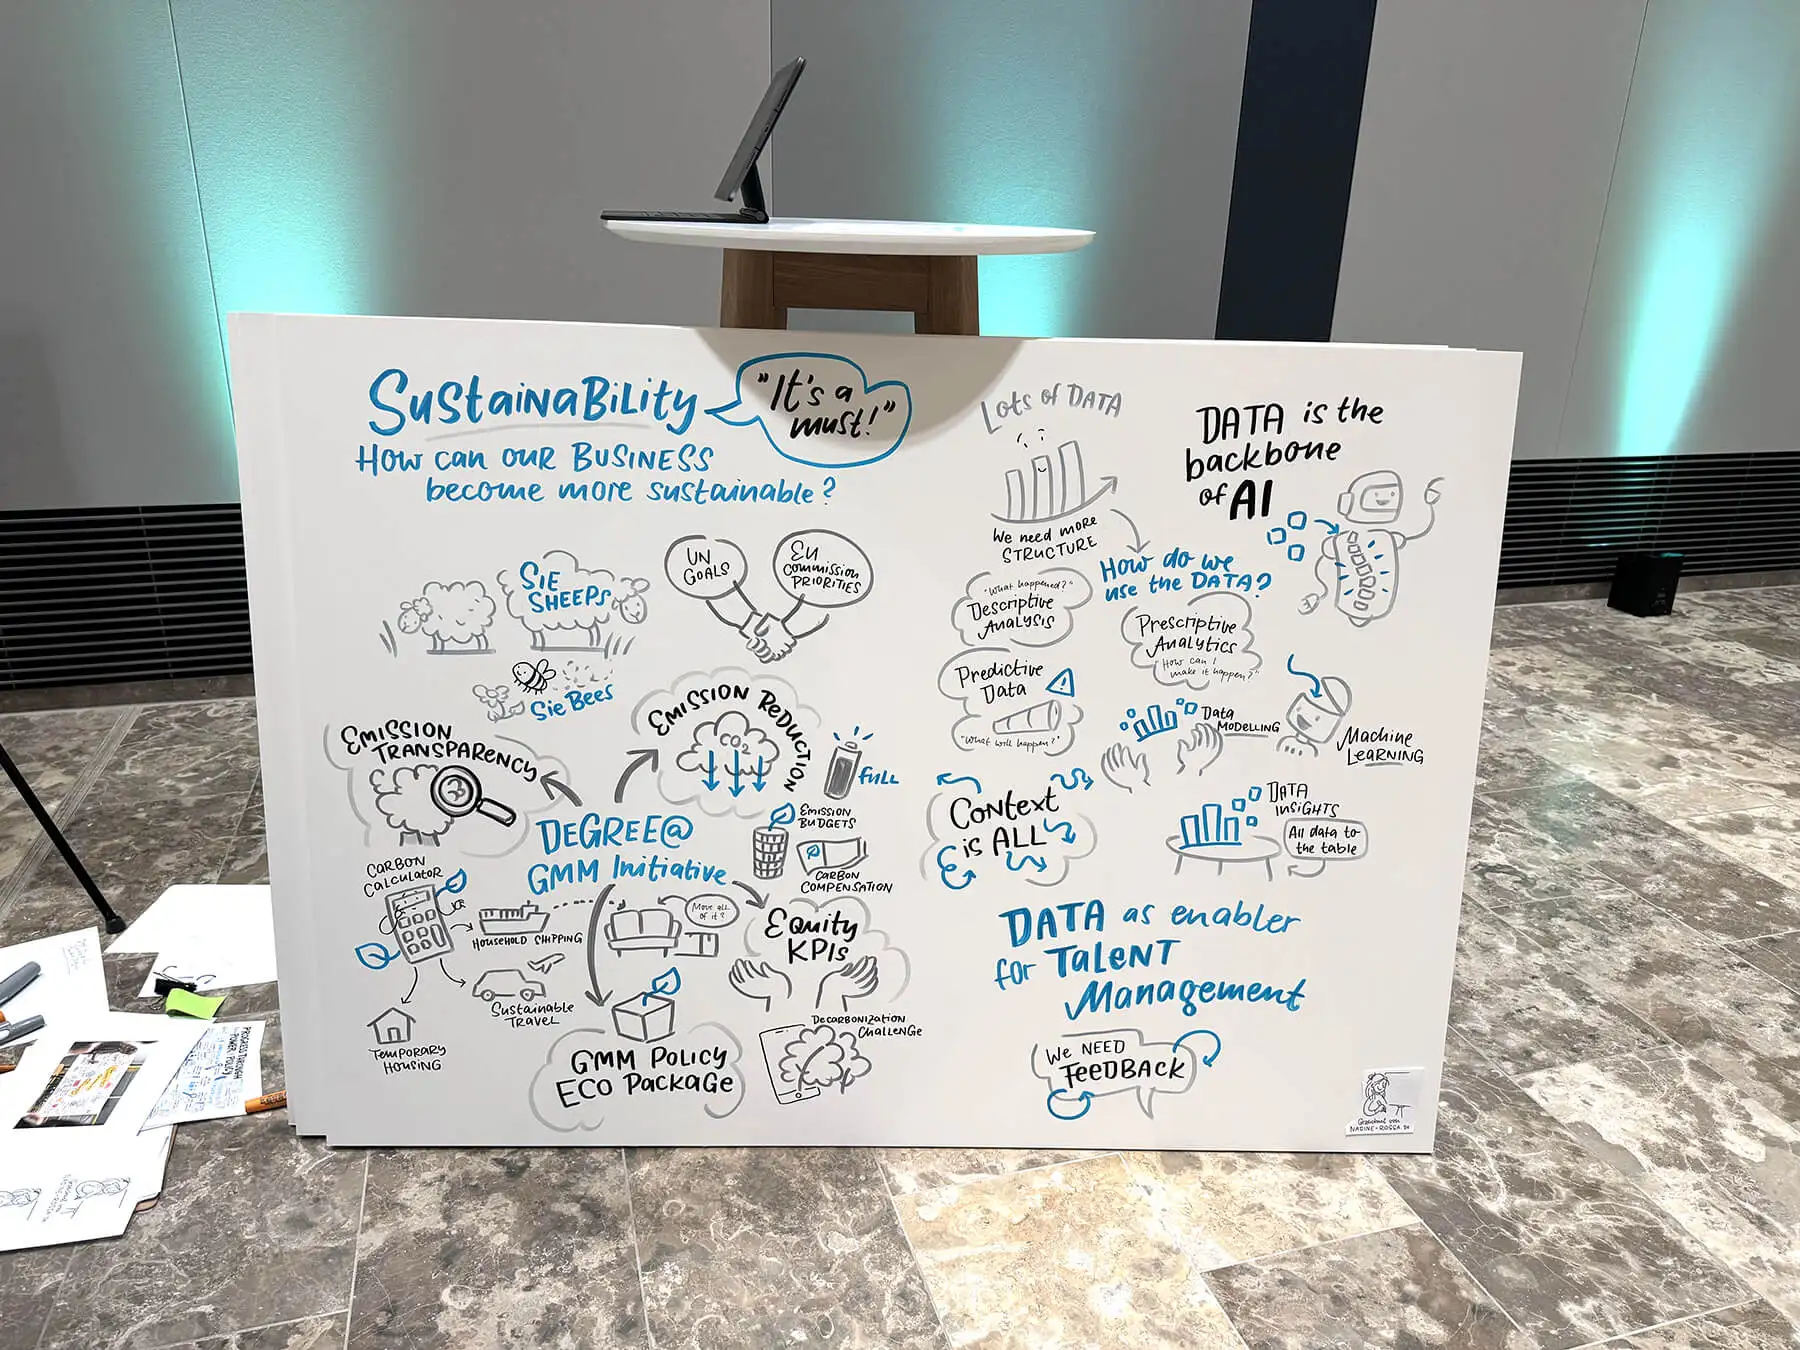 SUSTAINABILITY
"It's a
must!"
HOW can our BUSINESS
become more sustainable?
SIE
SHEEPS
Sie Bees
UN
GOALS
EU
commission
PRIORITIES
EMISSION
TRANSPARENCY
EMISSION REDUCTION
CO2
FULL
EMISSION
BUDGETS
CARBON
COMPENSATION
DEGREE@
GMM Initiative
CARBON
CALCULATOR
HOUSEHOLD SHIPPING
Move all
of it?
EQUITY
KPIs
Sustainable
TRAVEL
TEMPORARY
HOUSING
GMM POLICY
ECO PACKAGE
DECARBONIZATION
CHALLENGE
Lots of DATA
We need more
STRUCTURE
DATA is the
backbone
of AI
How do we
use the DATA?
"What happened?"
Descriptive
ANALYSIS
Prescriptive
Analytics
"How can I
make it happen?"
Predictive
Data
"What will happen?"
Data
MODELLING
Machine
LEARNING
Context
is ALL
DATA
INSIGHTS
All data to
the table
DATA as enabler
for TALENT
Management
We NEED
FEEDBACK
Gezeichnet von
NADINE-ROSSA.DE